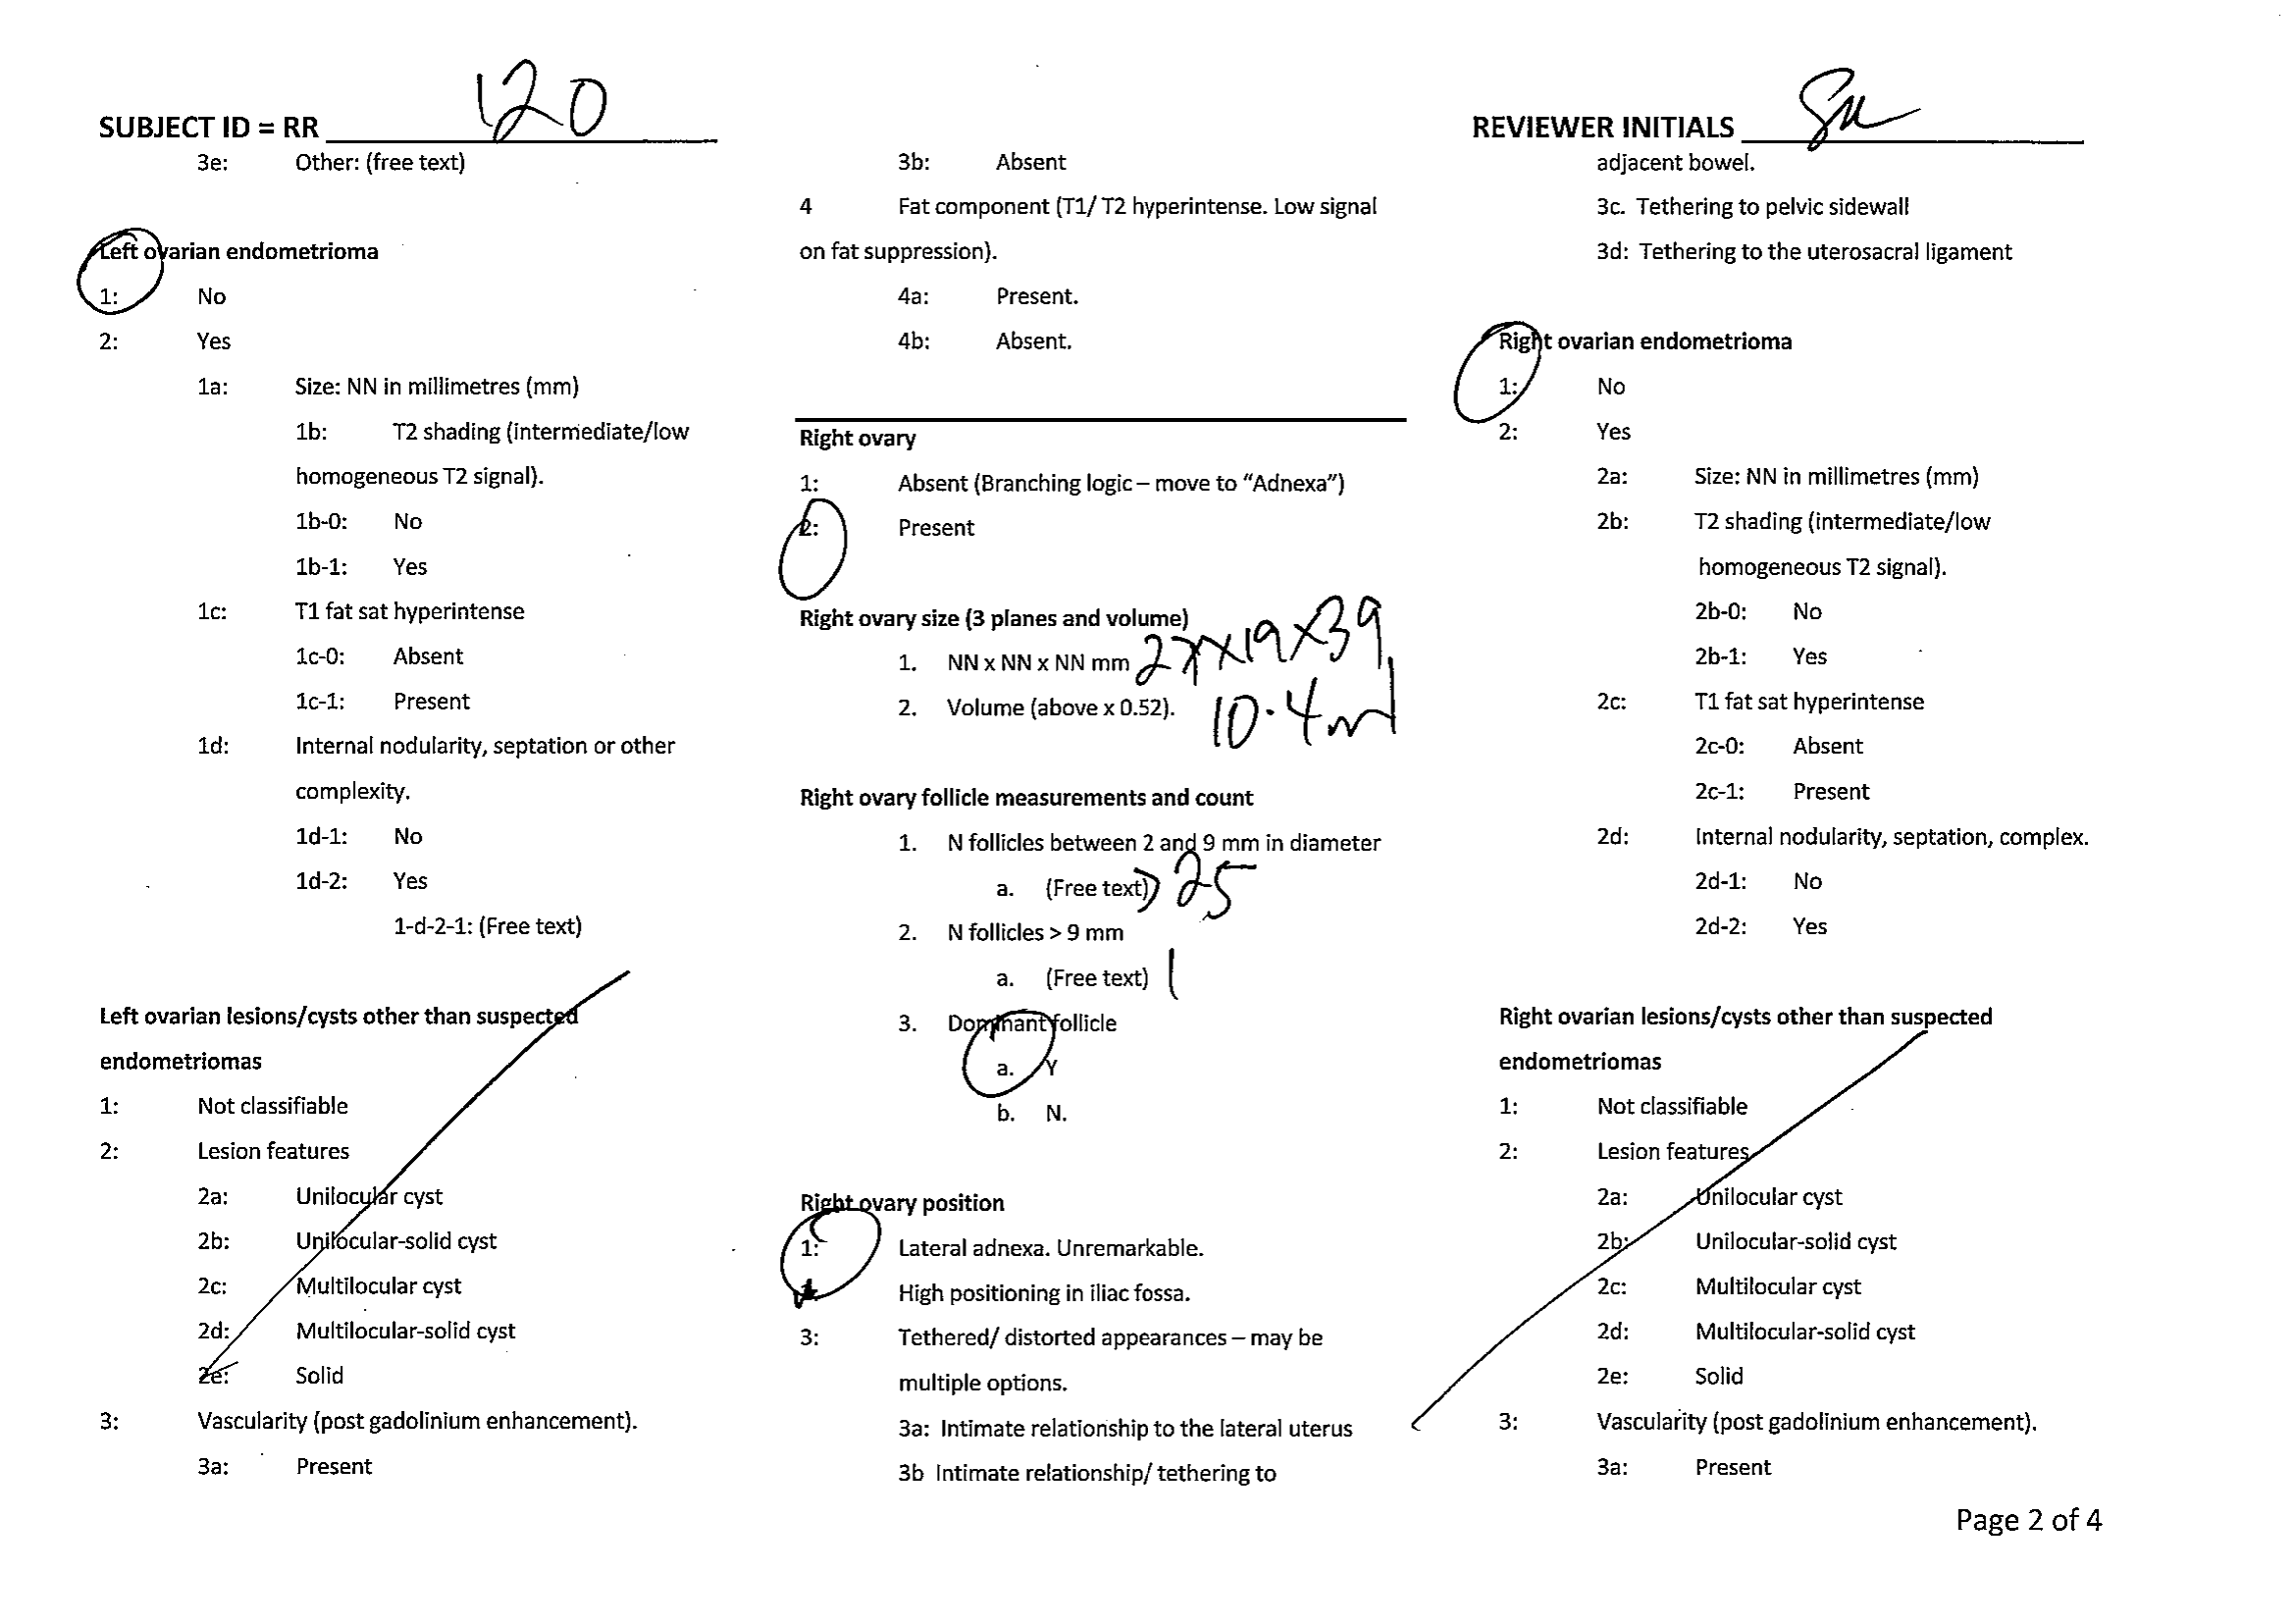 SUBJECT ID = RR 120
3e: Other: (free text)
Left ovarian endometrioma
1: No
2: Yes
1a: Size: NN in millimetres (mm)
1b: T2 shading (intermediate/low
homogeneous T2 signal).
1b-0: No
1b-1: Yes
1c: T1 fat sat hyperintense
1c-0: Absent
1c-1: Present
1d: Internal nodularity, septation or other
complexity.
1d-1: No
1d-2: Yes
1-d-2-1: (Free text)
Left ovarian lesions/cysts other than suspected
endometriomas
1: Not classifiable
2: Lesion features
2a: Unilocular cyst
2b: Unilocular-solid cyst
2c: Multilocular cyst
2d: Multilocular-solid cyst
2e: Solid
3: Vascularity (post gadolinium enhancement).
3a: Present
3b: Absent
4 Fat component (T1/ T2 hyperintense. Low signal
on fat suppression).
4a: Present.
4b: Absent.
Right ovary
1: Absent (Branching logic – move to “Adnexa”)
2: Present
Right ovary size (3 planes and volume)
1. NN x NN x NN mm 27x19x39
2. Volume (above x 0.52). 10.4ml
Right ovary follicle measurements and count
1. N follicles between 2 and 9 mm in diameter
a. (Free text) >25
2. N follicles > 9 mm
a. (Free text) 1
3. Dominant follicle
a. Y
b. N.
Right ovary position
1: Lateral adnexa. Unremarkable.
High positioning in iliac fossa.
3: Tethered/ distorted appearances – may be
multiple options.
3a: Intimate relationship to the lateral uterus
3b Intimate relationship/ tethering to
REVIEWER INITIALS
adjacent bowel.
3c. Tethering to pelvic sidewall
3d: Tethering to the uterosacral ligament
Right ovarian endometrioma
1: No
2: Yes
2a: Size: NN in millimetres (mm)
2b: T2 shading (intermediate/low
homogeneous T2 signal).
2b-0: No
2b-1: Yes
2c: T1 fat sat hyperintense
2c-0: Absent
2c-1: Present
2d: Internal nodularity, septation, complex.
2d-1: No
2d-2: Yes
Right ovarian lesions/cysts other than suspected
endometriomas
1: Not classifiable
2: Lesion features
2a: Unilocular cyst
2b: Unilocular-solid cyst
2c: Multilocular cyst
2d: Multilocular-solid cyst
2e: Solid
3: Vascularity (post gadolinium enhancement).
3a: Present
Page 2 of 4